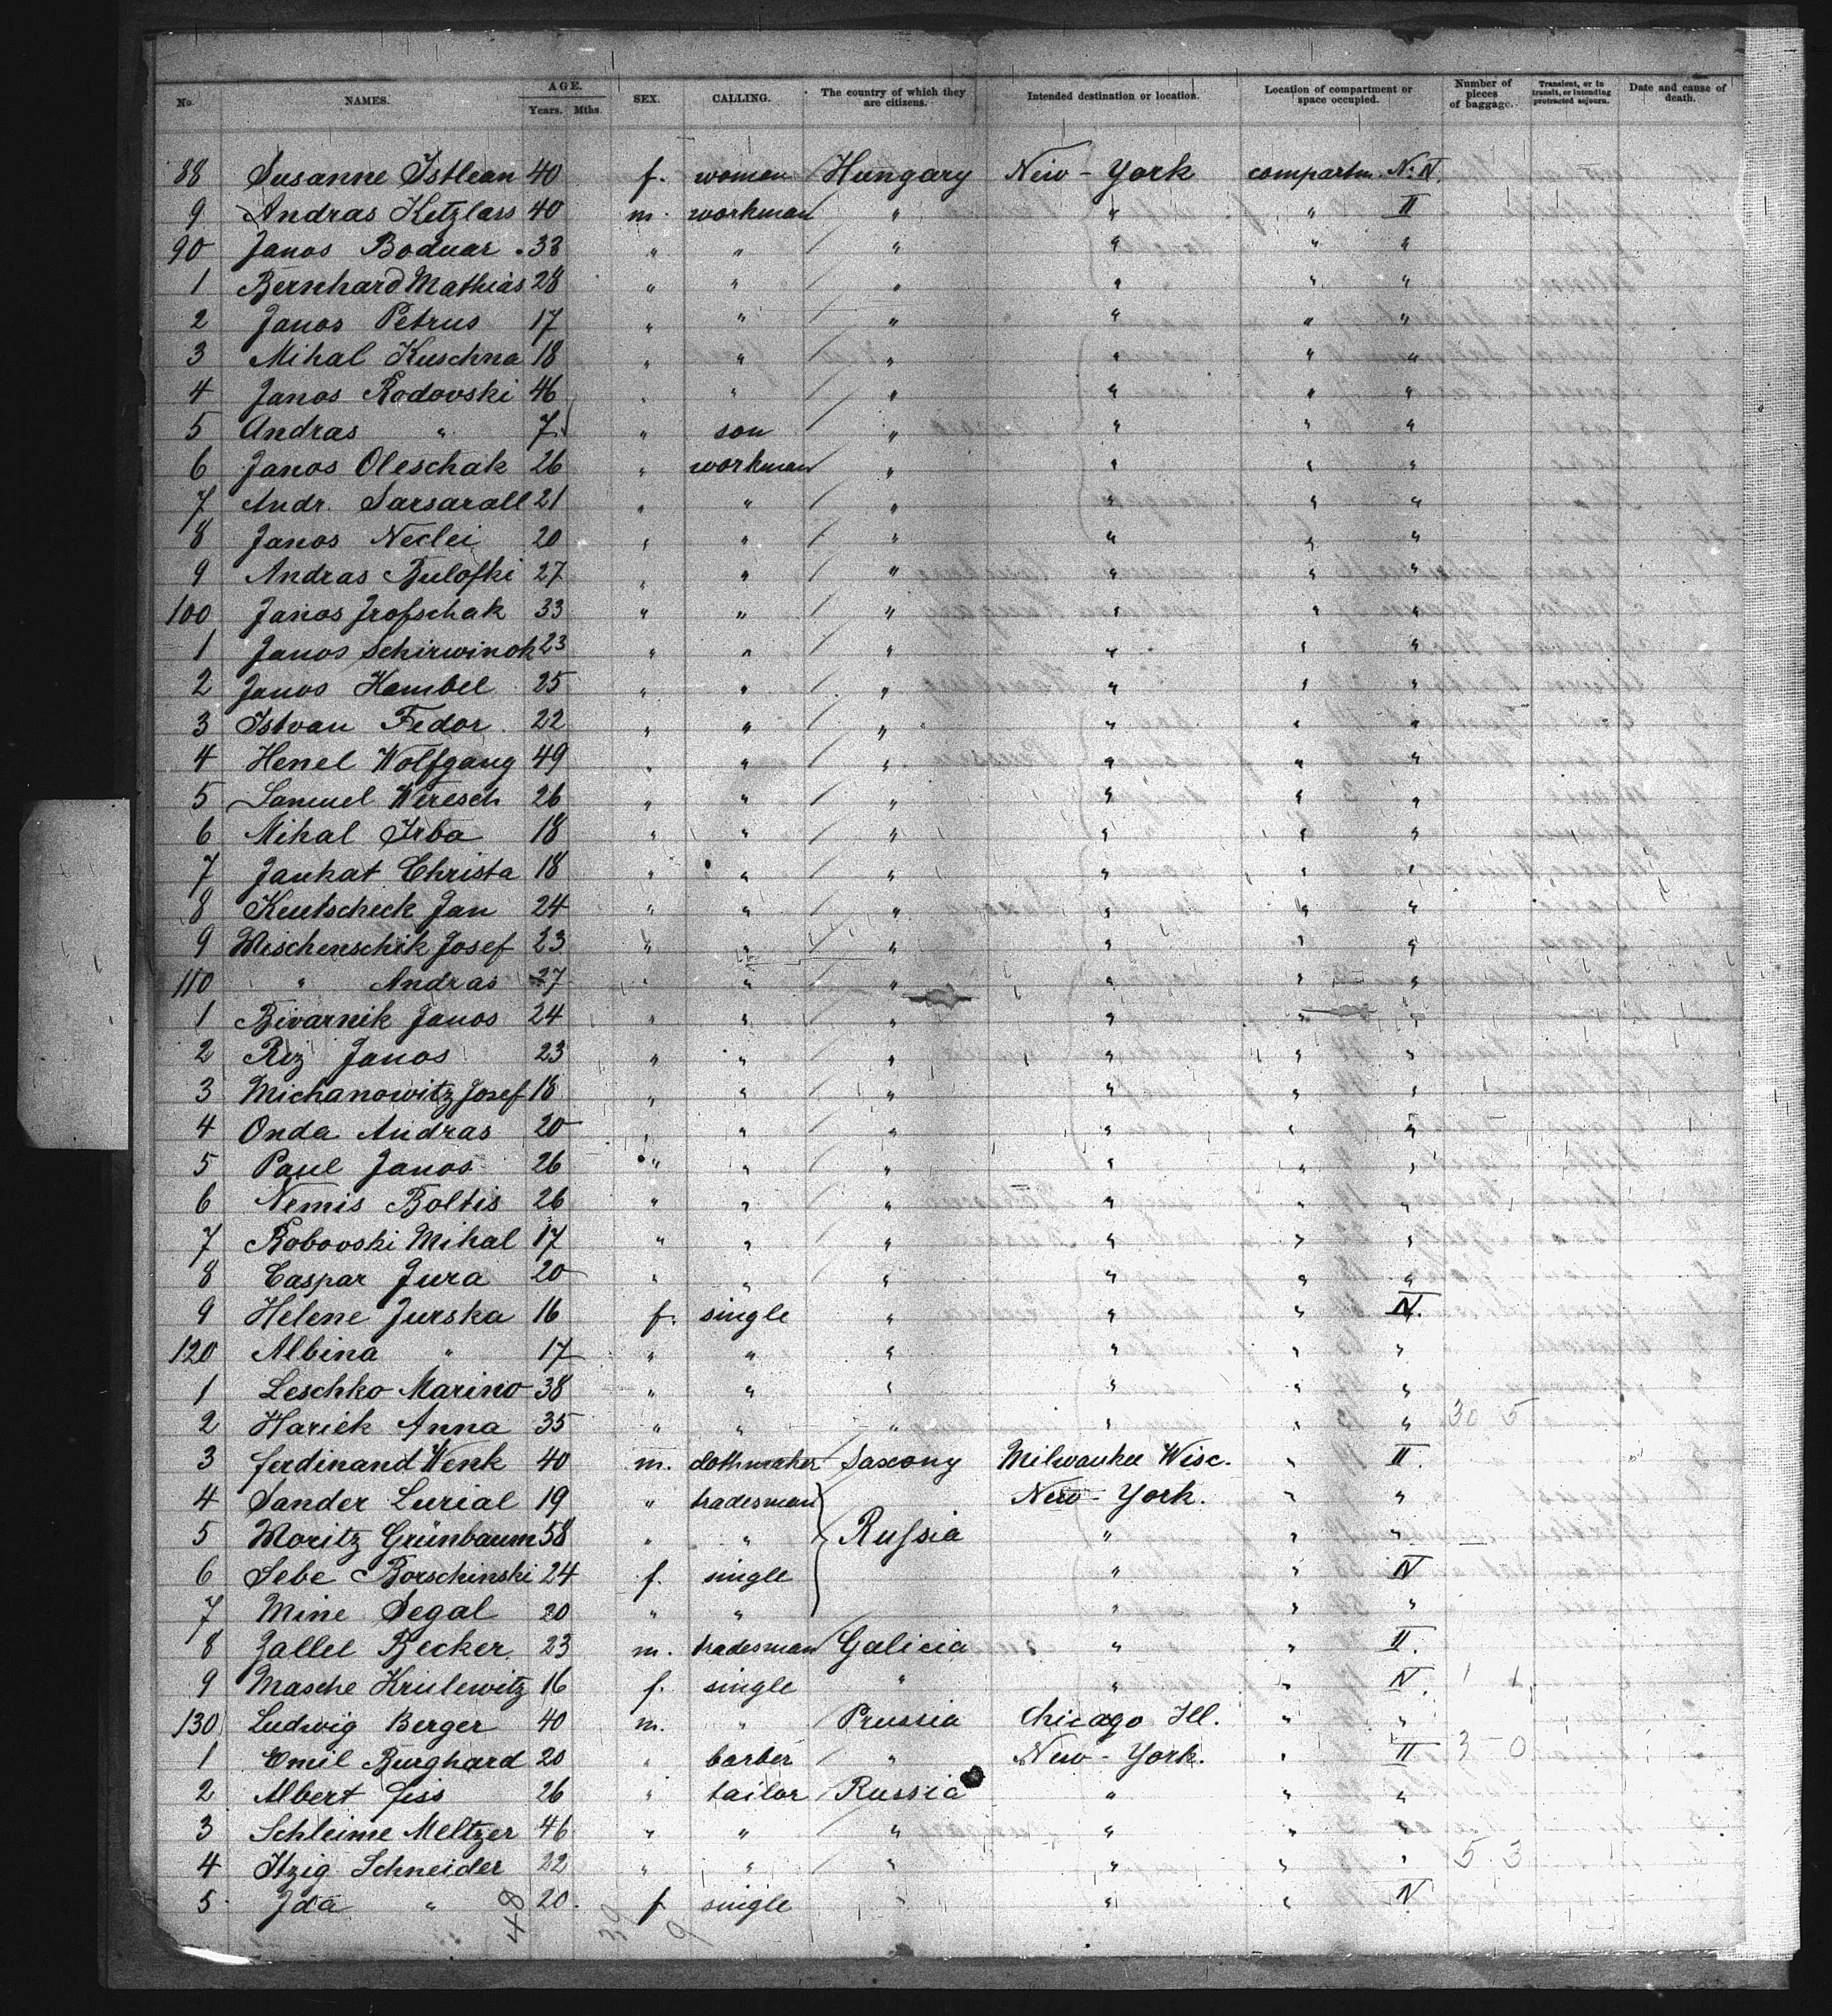 No. NAMES. AGE. Years. Mths. SEX. CALLING. The country of which they are citizens. Intended destination or location. Location of compartment or space occupied. Number of pieces of baggage. Transient, or in transit, or intending protracted sojourn. Date and cause of death.
88 Susanne Istlean 40 f. woman Hungary New-York compartm. N: IV.
9 Andras Ketzlass 40 m. workman " " " II
90 Janos Boduar 33 " " " " " "
1 Bernhard Mathias 28 " " " " " "
2 Janos Petrus 17 " " " " " "
3 Mihal Kuschna 18 " " " " " "
4 Janos Rodovski 46 " " " " " "
5 Andras " 7 " son " " " "
6 Janos Oleschak 26 " workman " " " "
7 Andr. Sarsarall 21 " " " " " "
8 Janos Neclei 20 " " " " " "
9 Andras Bulofki 27 " " " " " "
100 Janos Jrofschak 33 " " " " " "
1 Janos Schirwinok 23 " " " " " "
2 Janos Hambel 25 " " " " " "
3 Istvan Fedor 22 " " " " " "
4 Henel Wolfgang 49 " " " " " "
5 Samuel Weresch 26 " " " " " "
6 Mihal Irba 18 " " " " " "
7 Jankat Christa 18 " " " " " "
8 Keutscheck Jan 24 " " " " " "
9 Mischenschik Josef 23 " " " " " "
110 " Andras 27 " " " " " "
1 Bivarnik Janos 24 " " " " " "
2 Riz Janos 23 " " " " " "
3 Michanowitz Josef 18 " " " " " "
4 Onda Andras 20 " " " " " "
5 Paul Janos 26 " " " " " "
6 Nemis Boltis 26 " " " " " "
7 Robovski Mihal 17 " " " " " "
8 Caspar Jura 20 " " " " " "
9 Helene Jurska 16 f. single " " " IV.
120 Albina " 17 " " " " " "
1 Leschko Marino 38 " " " " " "
2 Hariek Anna 35 " " " " " " 30 5
3 Ferdinand Wenk 40 m. clothmaker Saxony Milwaukee Wisc. " II.
4 Sander Lurial 19 " tradesman New-York. " "
5 Moritz Grünbaum 58 " " Russia " " "
6 Sebe Borschinski 24 f. single " " IV
7 Mine Segal 20 " " " " "
8 Zallel Becker 23 m. tradesman Galicia " " II.
9 Masche Krulewitz 16 f. single " " " IV. 1 1
130 Ludwig Berger 40 m. " Prussia Chicago Ill. " "
1 Emil Burghard 20 " barber " New-York. " II 3 0
2 Albert Fiss 26 " tailor Russia " " "
3 Schleime Meltzer 46 " " " " " "
4 Itzig Schneider 22 " " " " " " 5 3
5 Ida " 20. f single " " " IV
48 39 9